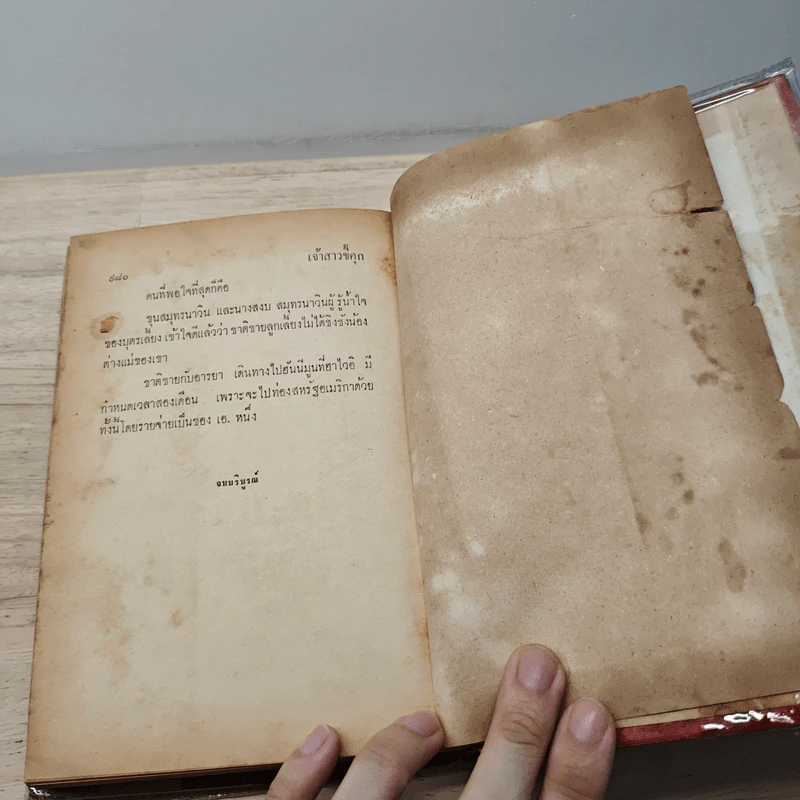 ๙๘๐
เจ้าสาวขี้คุก
คนที่พอใจที่สุดก็คือ
ขุนสมุทรนาวิน และนางสงบ สมุทรนาวินผู้รู้น้ำใจ
ของบุตรเลี้ยง เข้าใจดีแล้วว่า ชาติชายลูกเลี้ยงไม่ได้ชิงชังน้อง
ต่างแม่ของเขา
ชาติชายกับอารยา เดินทางไปฮันนีมูนที่ฮาไวอิ มี
กำหนดเวลาสองเดือน เพราะจะไปท่องสหรัฐอเมริกาด้วย
ทั้งนี้โดยรายจ่ายเป็นของ เอ. หนึ่ง
จบบริบูรณ์